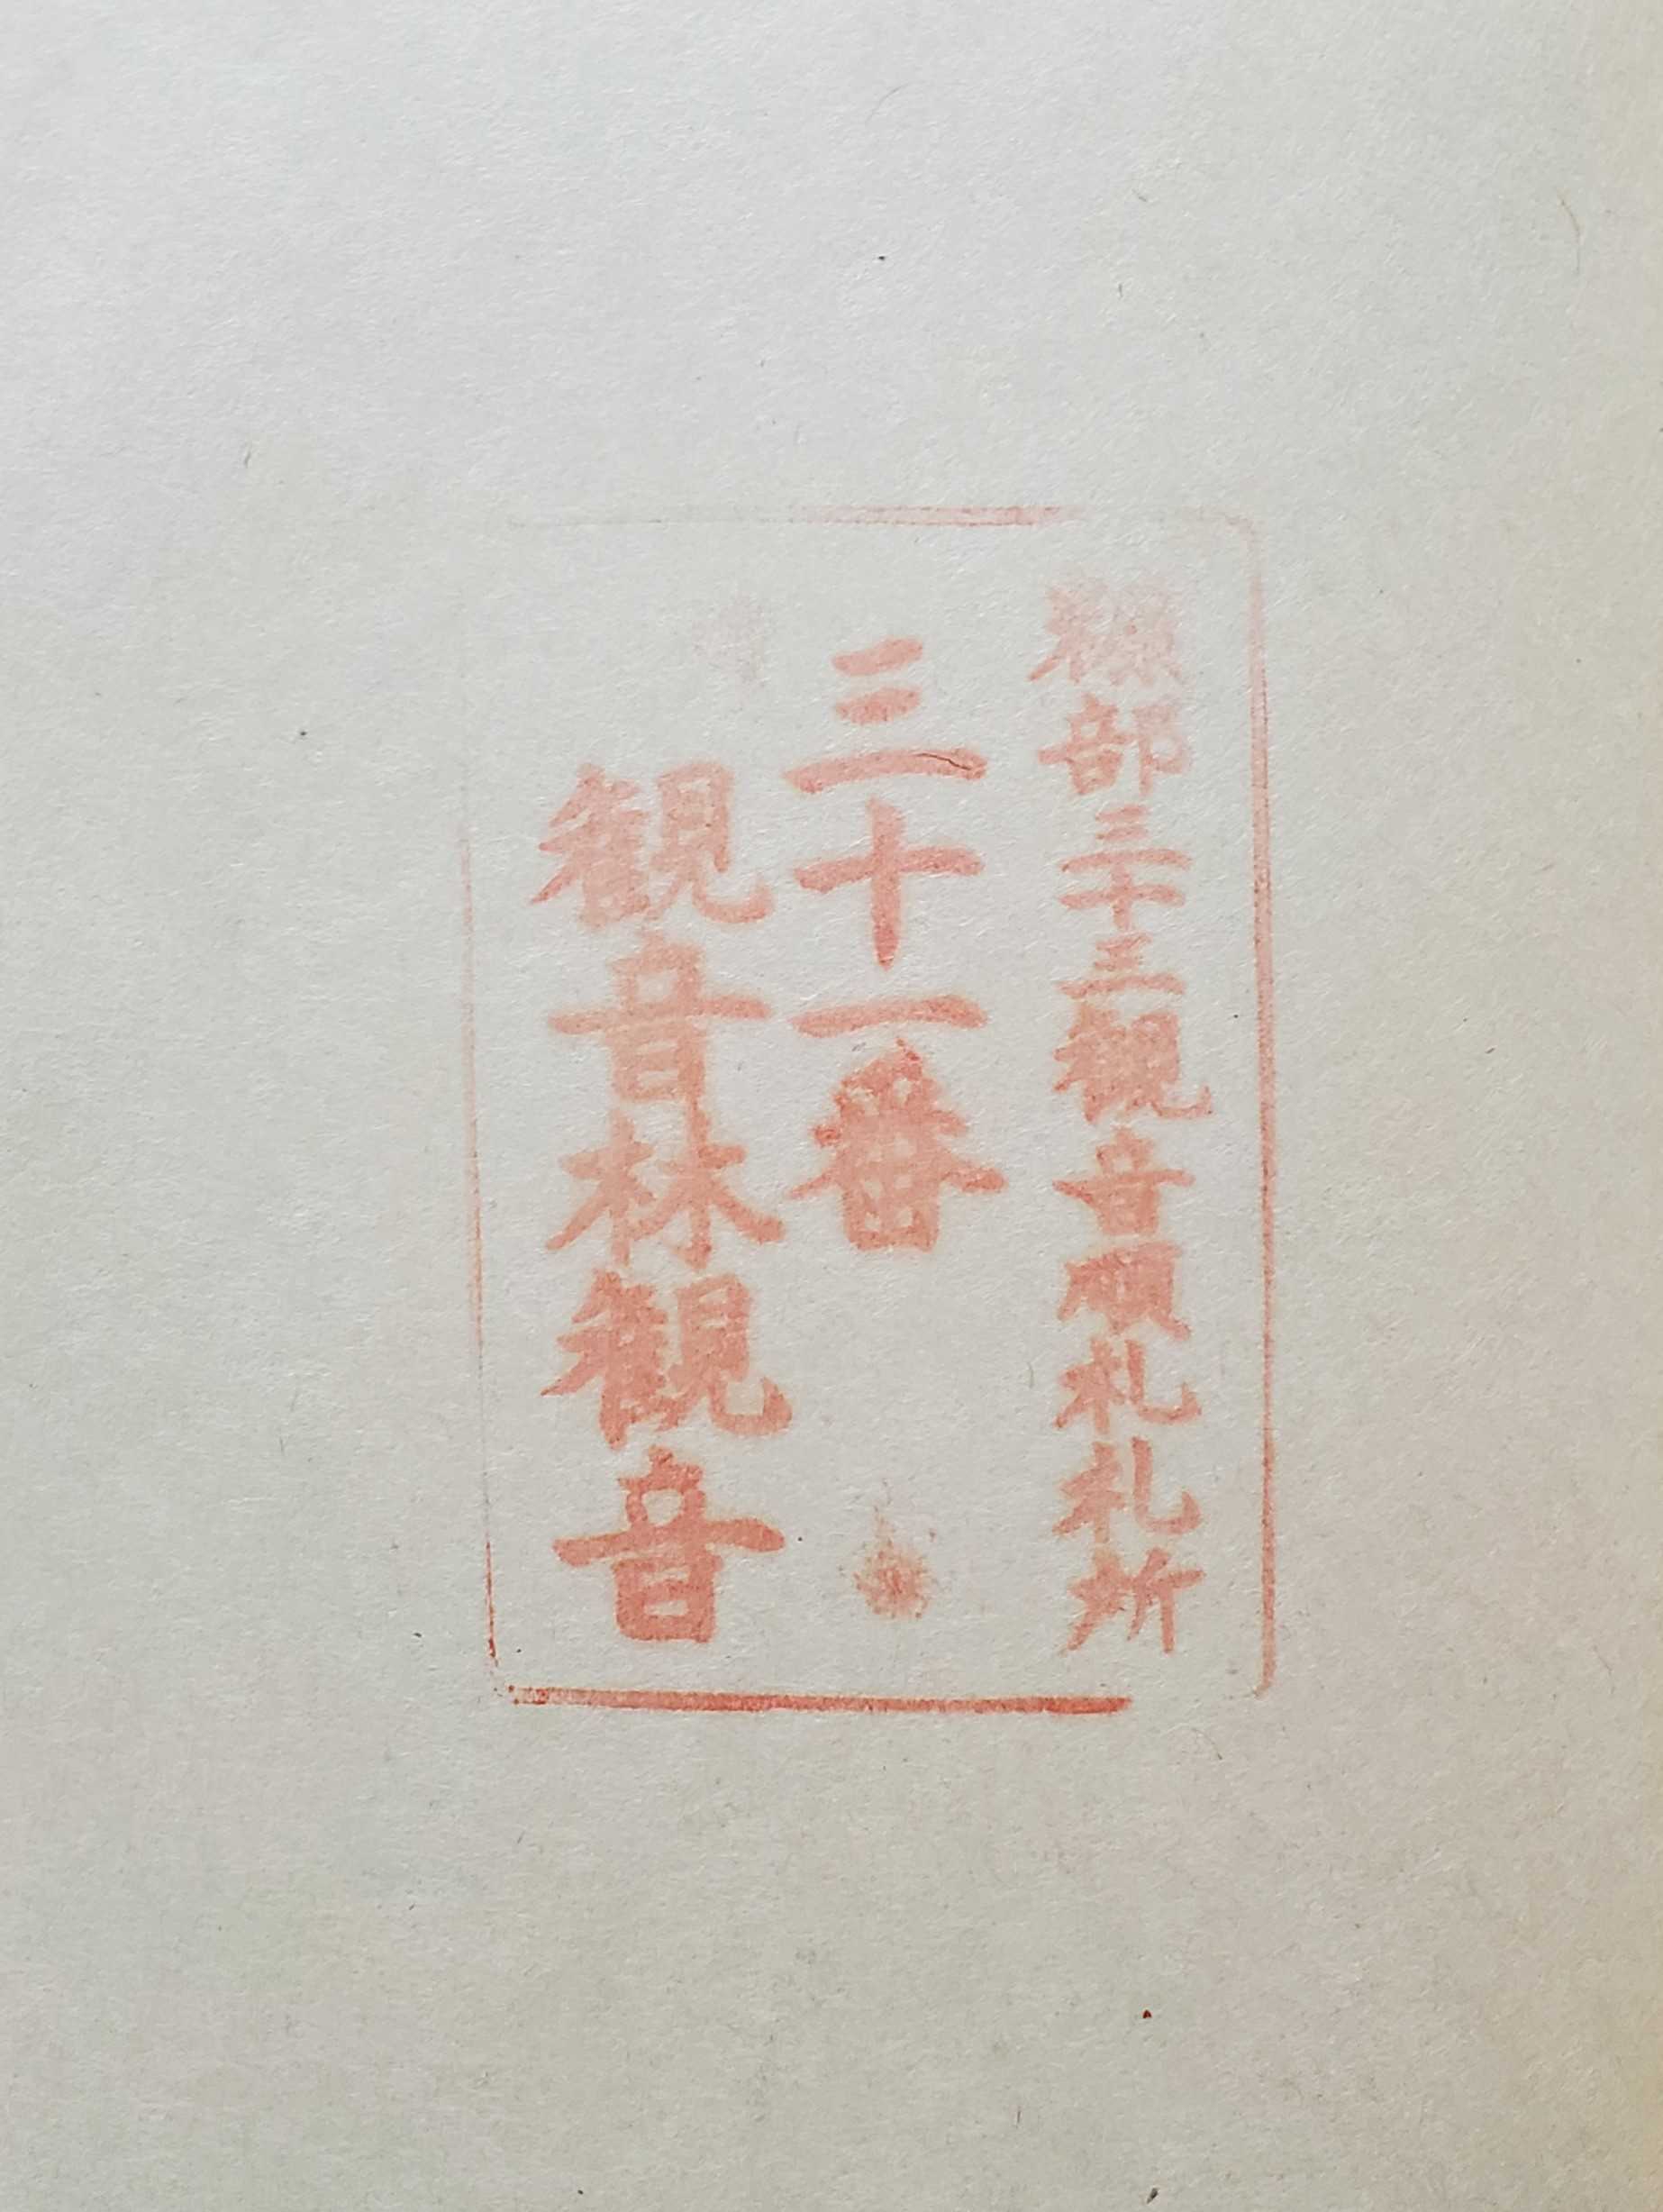 糠部三十三観音順礼札所
三十一番
観音林観音